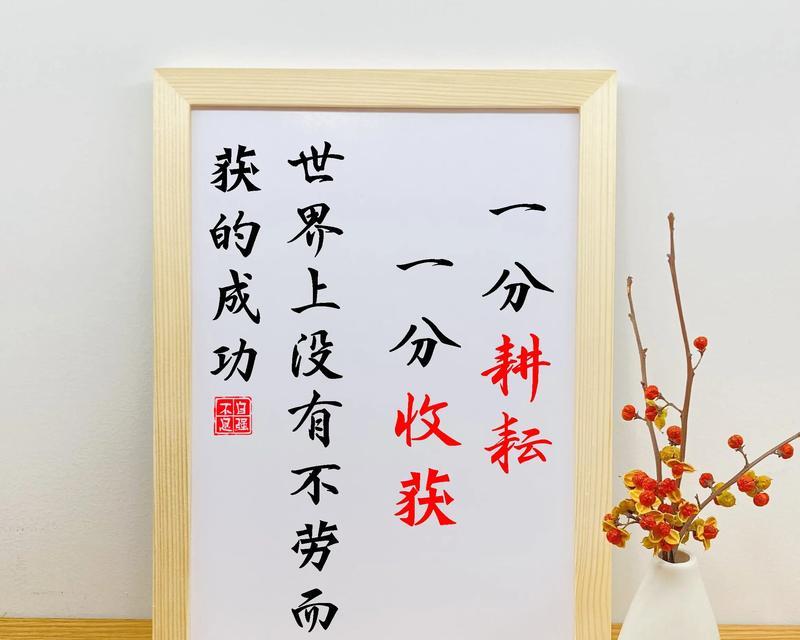 一分耕耘
一分收获
世界上没有不劳而
获的成功
自强
不息